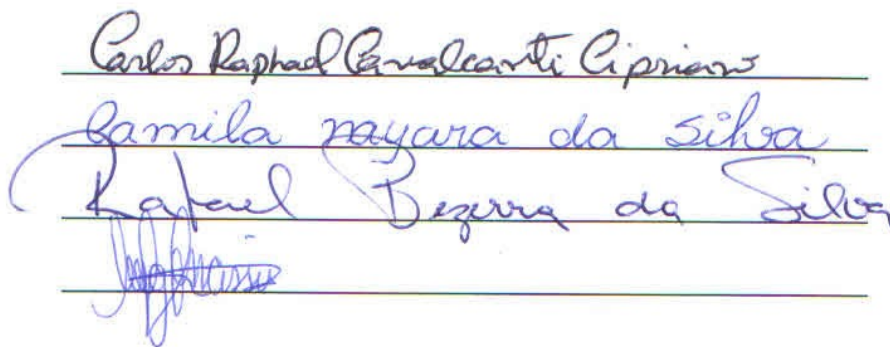 Carlos Raphael Cavalcanti Cipriano
Camila nayara da Silva
Rafael Bezerra da Silva